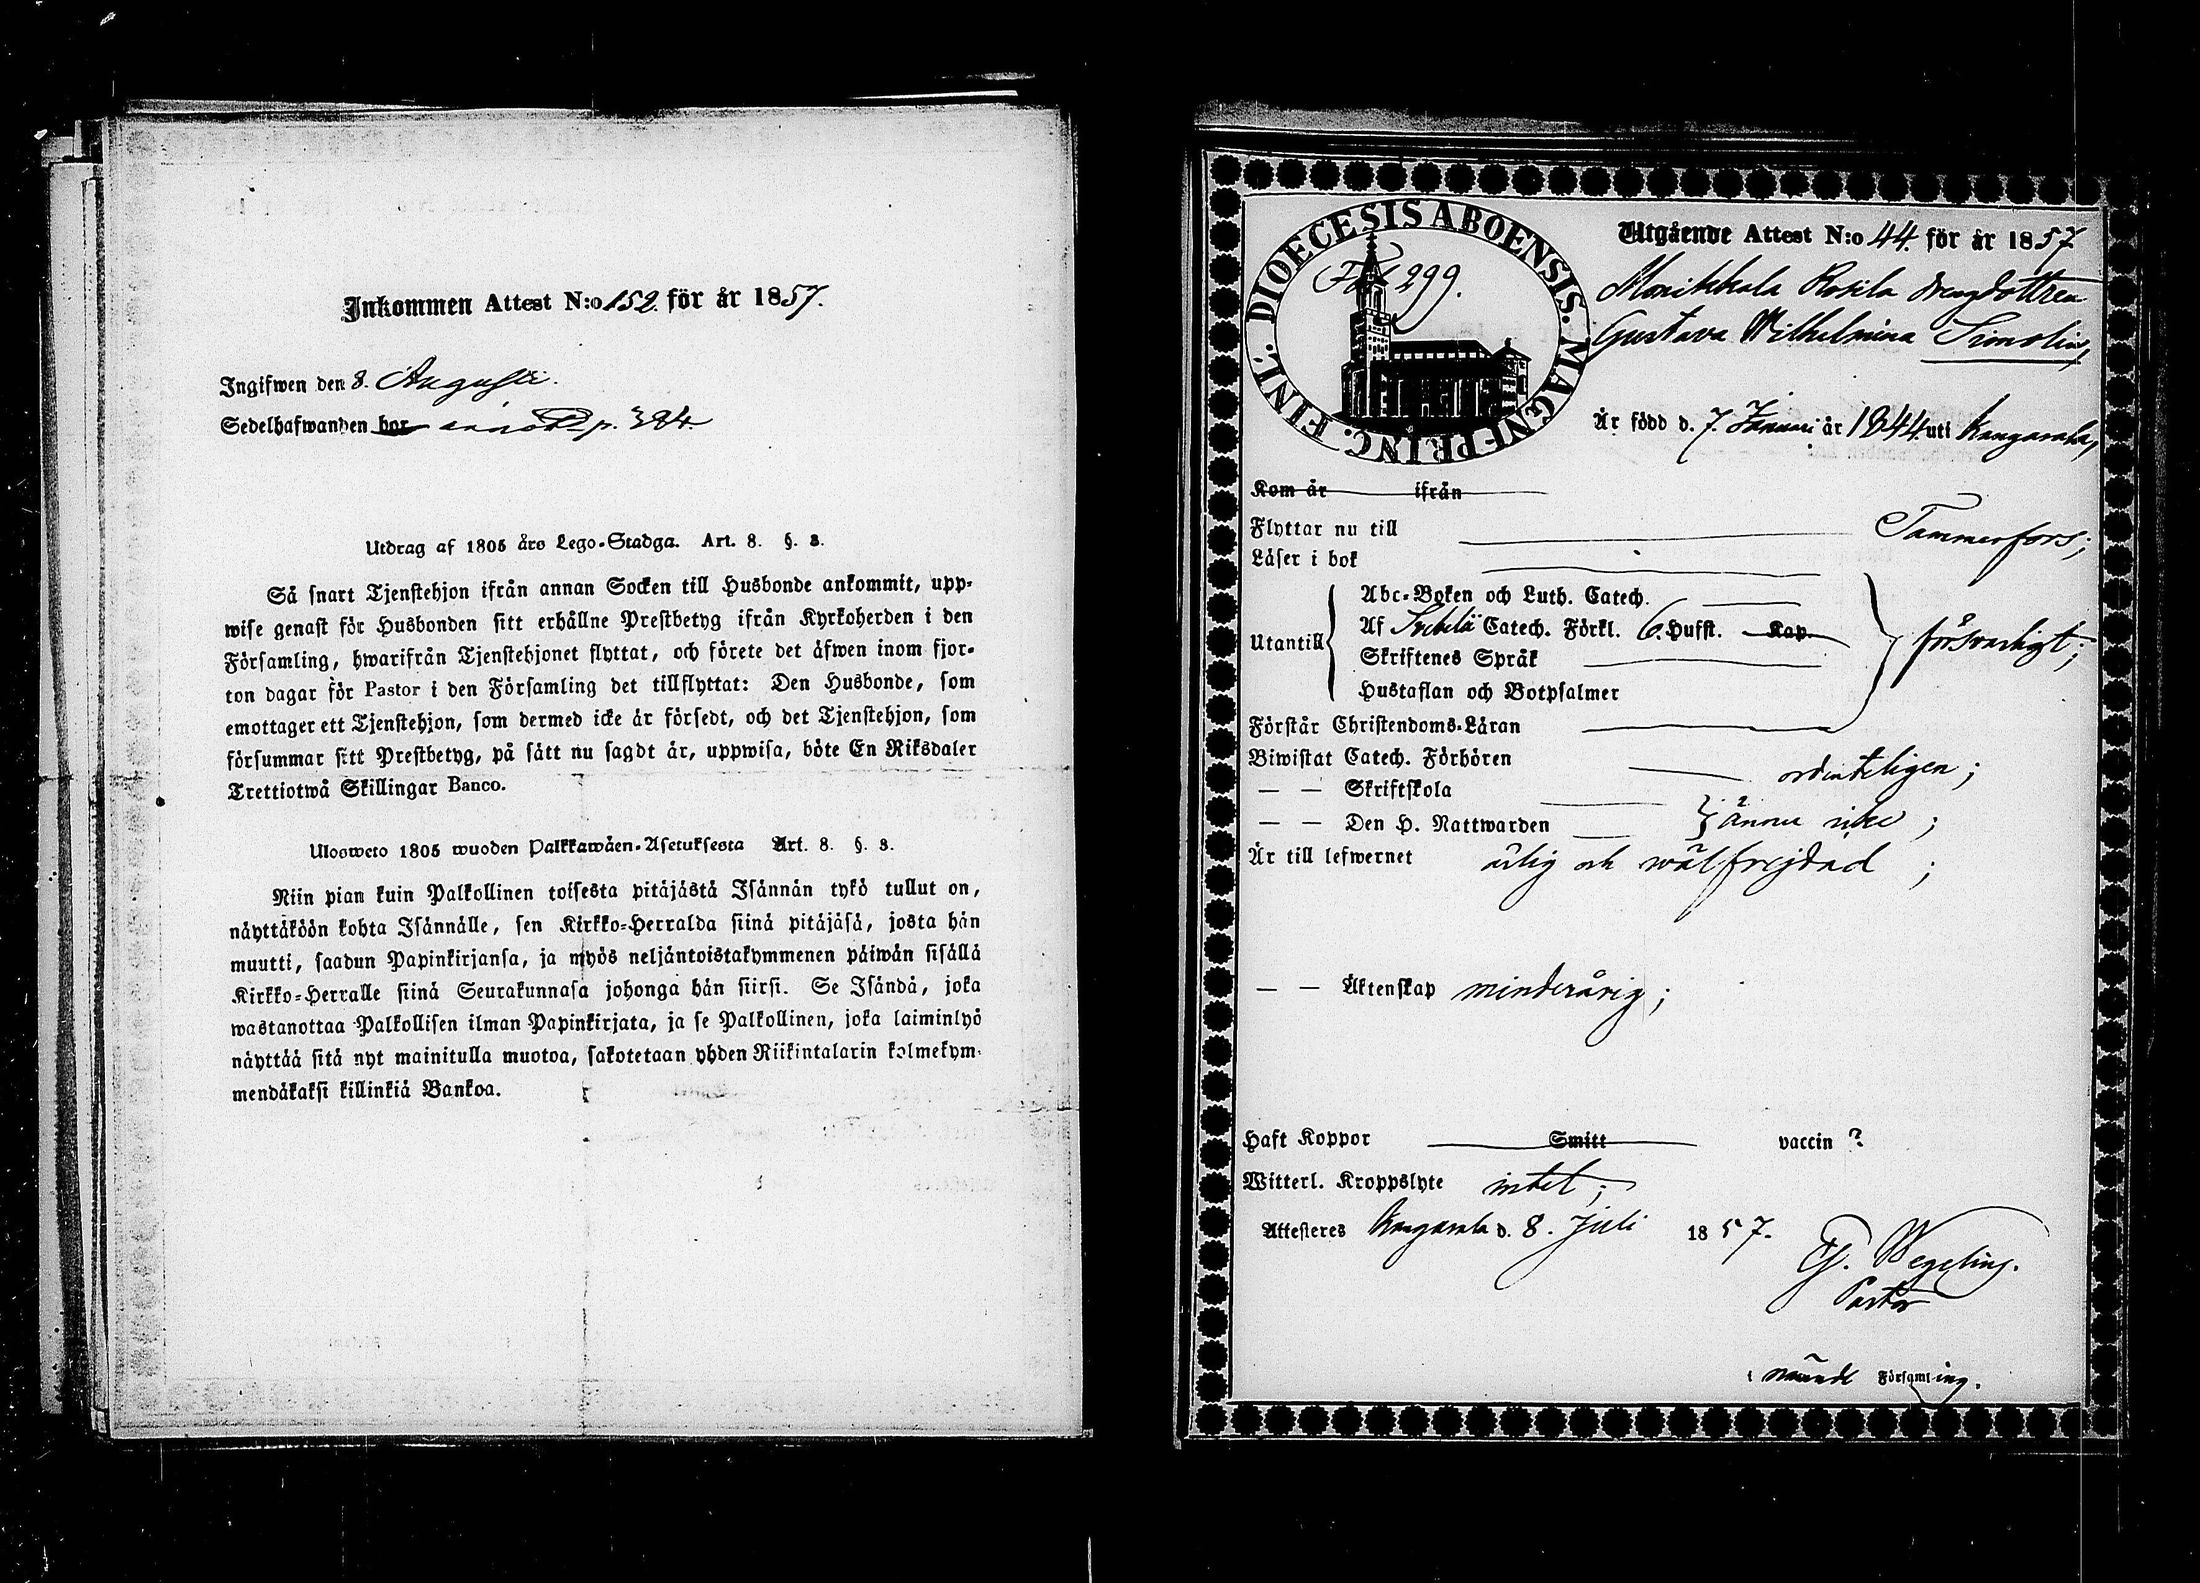 Inkommen Attest N:o 152. för år 1857.
Ingifwen den 8. Augusti.
Sedelhafwanden bor p. 324.
Utdrag af 1805 års Lego-Stadga. Art. 8. §. 3.
Så snart Tjenstehjon ifrån annan Socken till Husbonde ankommit, upp-
wise genast för Husbonden sitt erhållne Prestbetyg ifrån Kyrkoherden i den
Församling, hwarifrån Tjenstehjonet flyttat, och förete det äfwen inom fjor-
ton dagar för Pastor i den Församling det tillflyttat: Den Husbonde, som
emottager ett Tjenstehjon, som dermed icke är försedt, och det Tjenstehjon, som
försummar sitt Prestbetyg, på sätt nu sagdt är, uppwisa, böte En Riksdaler
Trettiotwå Skillingar Banco.
Ulosweto 1805 wuoden Palkkawäen-Asetuksesta Art. 8. §. 3.
Niin pian kuin Palkollinen toisesta pitäjästä Isännän tykö tullut on,
näyttäköön kohta Isännälle, sen Kirkko-Herralda siinä pitäjäsä, josta hän
muutti, saadun Papinkirjansa, ja myös neljäntoistakymmenen päiwän sisällä
Kirkko-Herralle siinä Seurakunnasa johonga hän siirsi. Se Isändä, joka
wastanottaa Palkollisen ilman Papinkirjata, ja se Palkollinen, joka laiminlyö
näyttää sitä nyt mainitulla muotoa, sakotetaan yhden Riikintalarin kolmekym-
mendäkaksi killinkiä Bankoa.
DIOECESIS ABOENSIS. MAGNI PRINC. FINL.
Fol 299.
Utgående Attest N:o 44. för år 1857
Marikkala Rosila drengdottren
Gustava Wilhelmina Simolin,
Är född d. 7. Januari år 1844 uti Kangasala,
Kom år ifrån
Flyttar nu till Tammerfors;
Läser i bok
Utantill
Abc-Boken och Luth. Catech.
Af Svebelii Catech. Förkl. 6. Hufst. Kap.
Skriftenes Språk
Hustaflan och Botpsalmer
försvarligt;
Förstår Christendoms-Läran
Biwistat Catech. Förhören ordenteligen;
— — Skriftskola
— — Den H. Nattwarden } ännu icke;
Är till lefwernet ärlig och wälfrejdad;
— — Äktenskap minderårig;
Haft Koppor Smitt vaccin ?
Witterl. Kroppslyte intet;
Attesteres Kangasala d. 8. Juli 1857.
Wegeling.
Pastor
i nämde Församling.